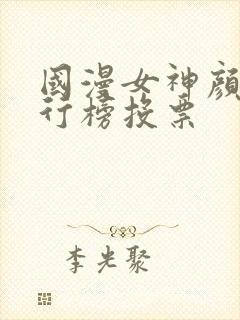 國漫女神顏
行榜投票
李光聚